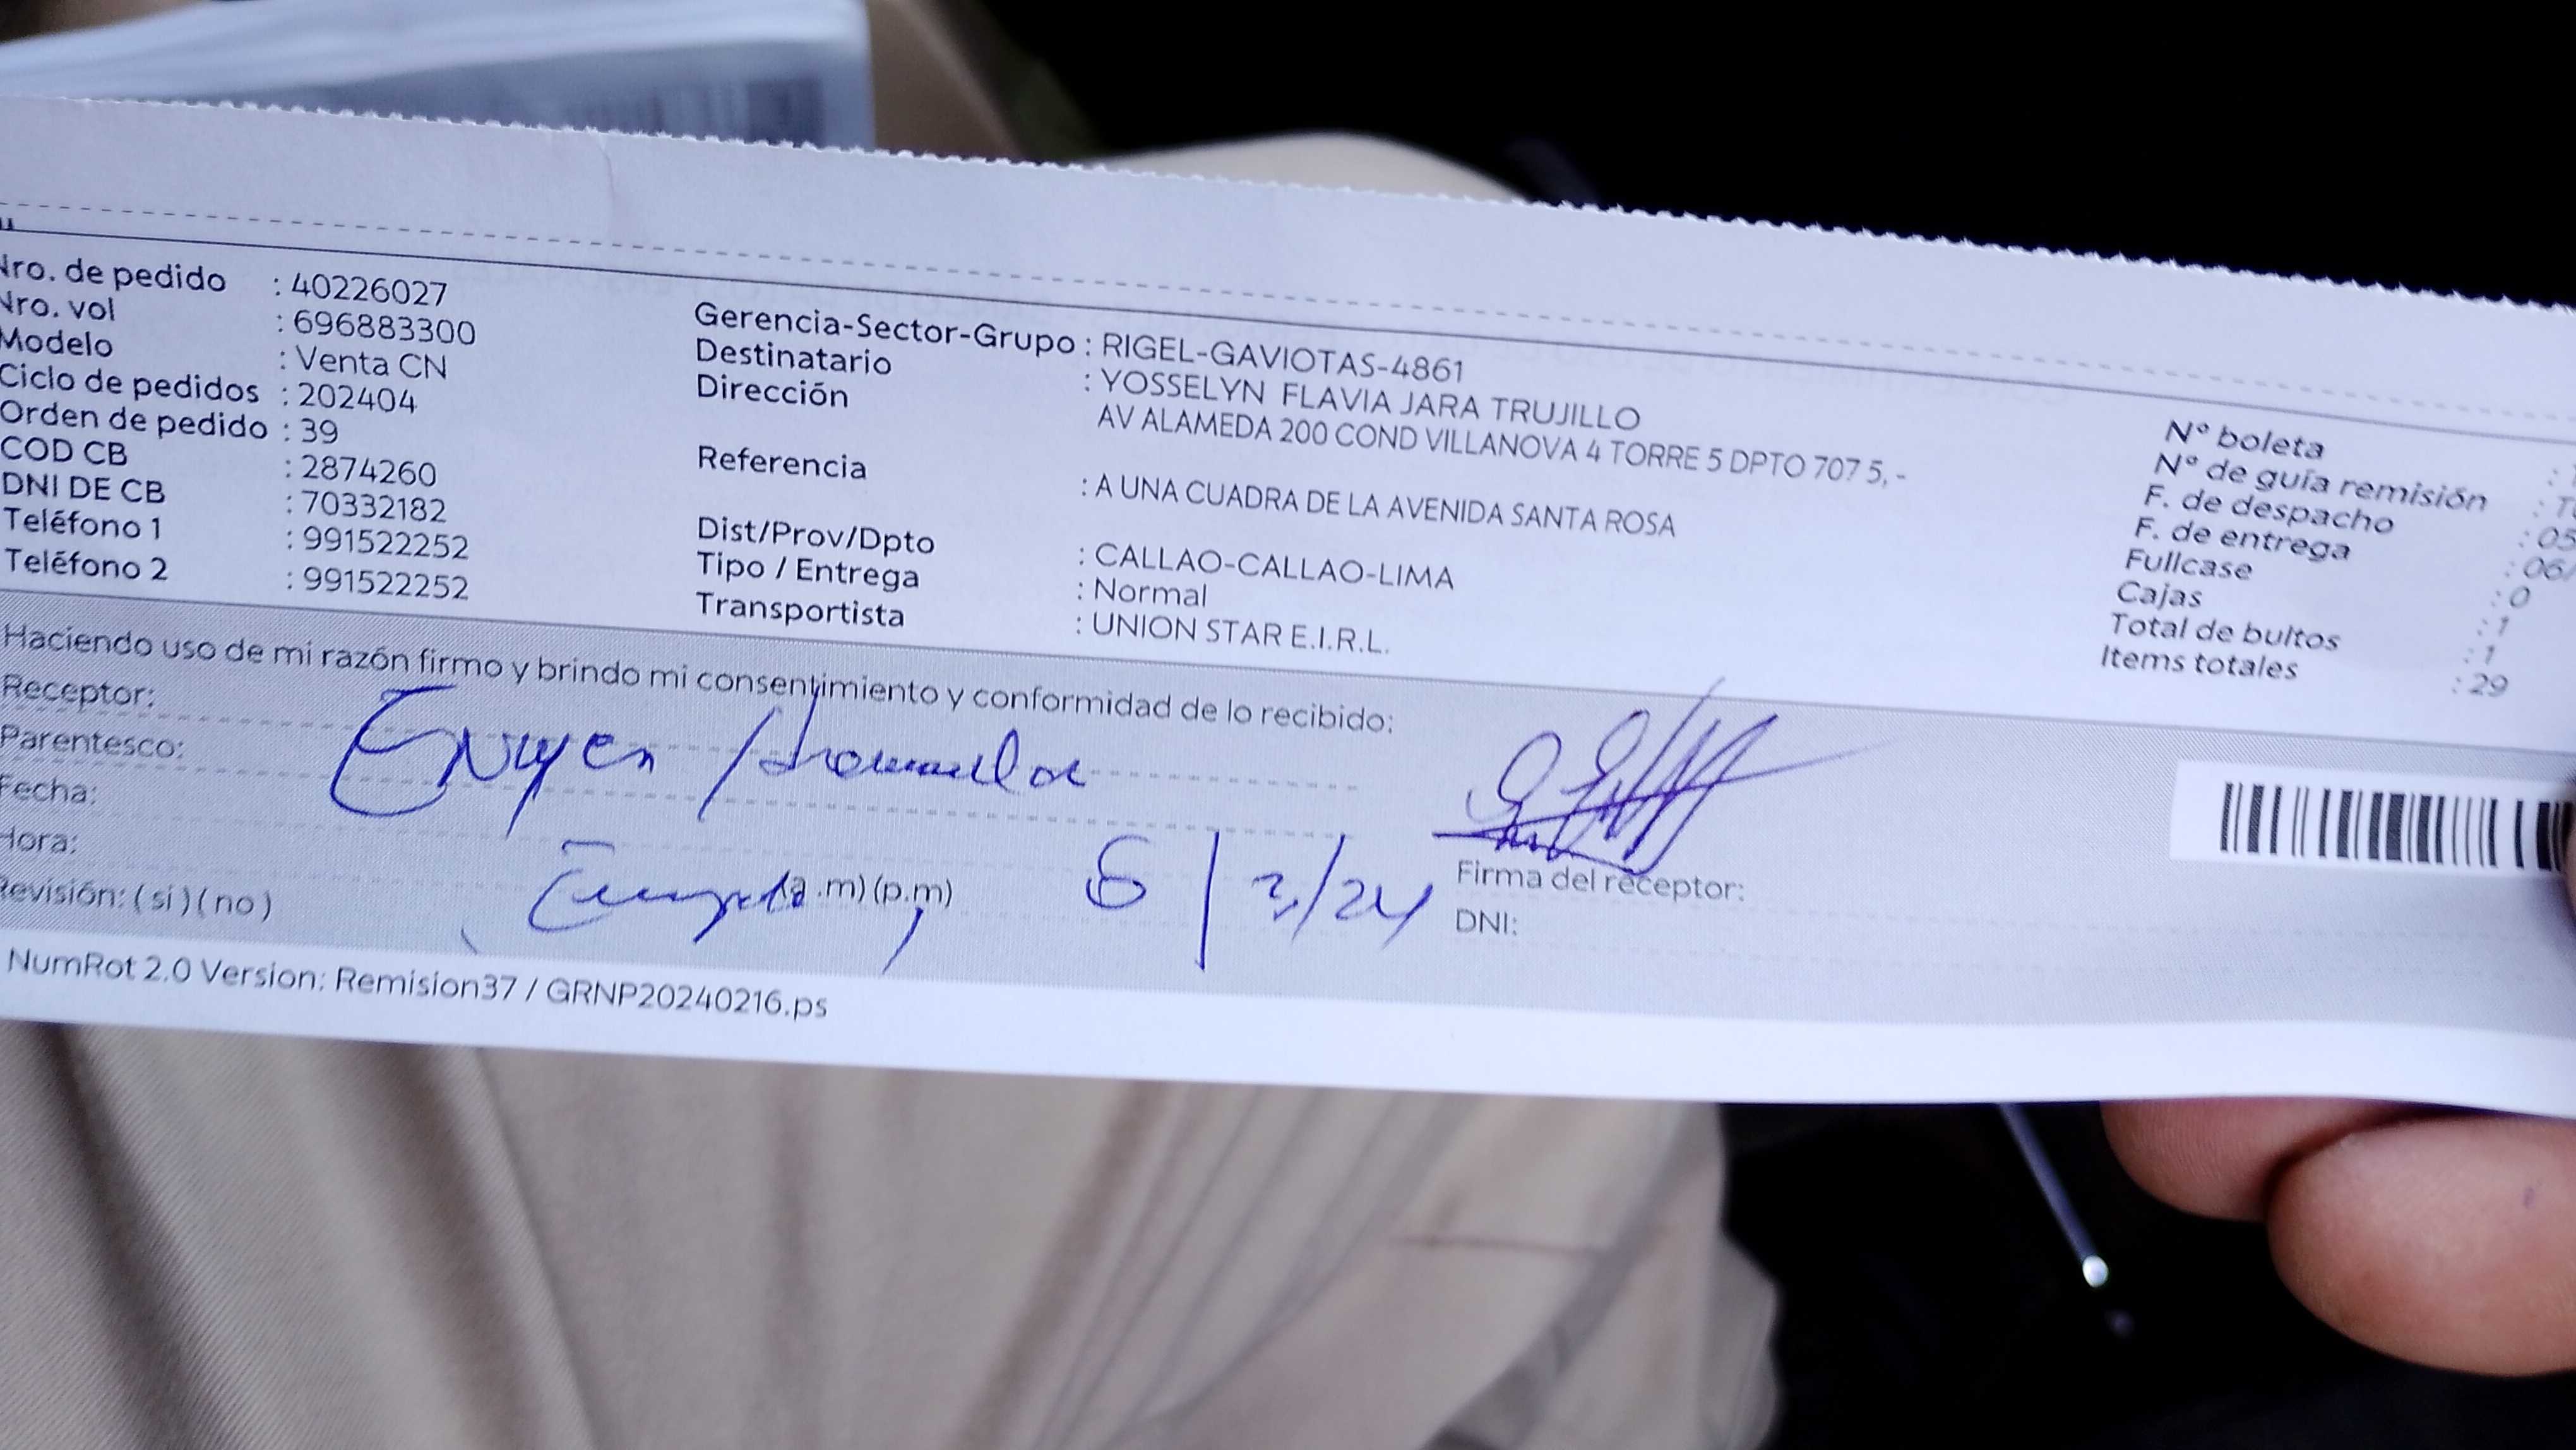 Nro. de pedido : 40226027
Nro. vol : 696883300
Modelo : Venta CN
Ciclo de pedidos : 202404
Orden de pedido : 39
COD CB : 2874260
DNI DE CB : 70332182
Teléfono 1 : 991522252
Teléfono 2 : 991522252
Gerencia-Sector-Grupo : RIGEL-GAVIOTAS-4861
Destinatario : YOSSELYN FLAVIA JARA TRUJILLO
Dirección AV ALAMEDA 200 COND VILLANOVA 4 TORRE 5 DPTO 707 5, -
Referencia : A UNA CUADRA DE LA AVENIDA SANTA ROSA
Dist/Prov/Dpto : CALLAO-CALLAO-LIMA
Tipo / Entrega : Normal
Transportista : UNION STAR E.I.R.L.
N° boleta :
N° de guía remisión :
F. de despacho : 05
F. de entrega : 06/
Fullcase : 0
Cajas : 1
Total de bultos : 1
Items totales : 29
Haciendo uso de mi razón firmo y brindo mi consentimiento y conformidad de lo recibido:
Receptor:
Parentesco:
Fecha:
Hora: (a.m) (p.m) 6/3/24
Revisión: (si) (no)
Firma del receptor:
DNI:
NumRot 2.0 Version: Remision37 / GRNP20240216.ps